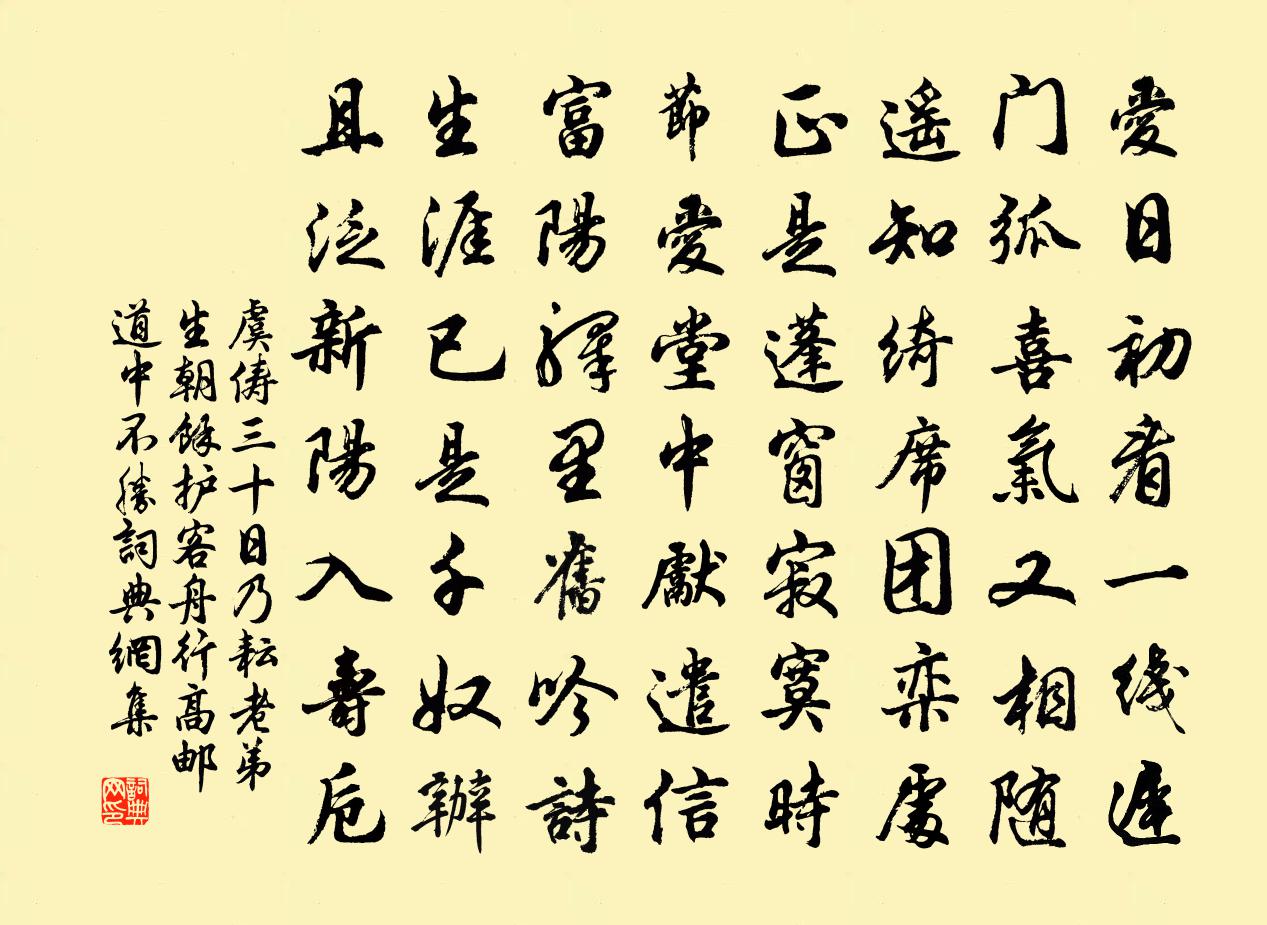 愛日初看一线遲
门弧喜氣又相随
遥知绮席团栾處
正是蓬窗寂寞時
節愛堂中獻遣信
富陽驛里舊吟詩
生涯已是千奴辦
且泛新陽入壽卮
虞儔三十日乃耘老弟
生朝餘护客舟行高邮
道中不勝詞典網集
詞典网印